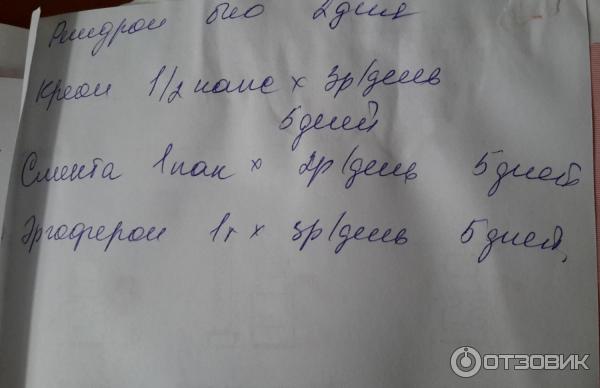 Регидрон био 2 дня
Креон 1/2 капс x 3р/день
5 дней
Смекта 1 пак x 2р/день 5 дней
Эргоферон 1т x 3р/день 5 дней,
ОТЗОВИК